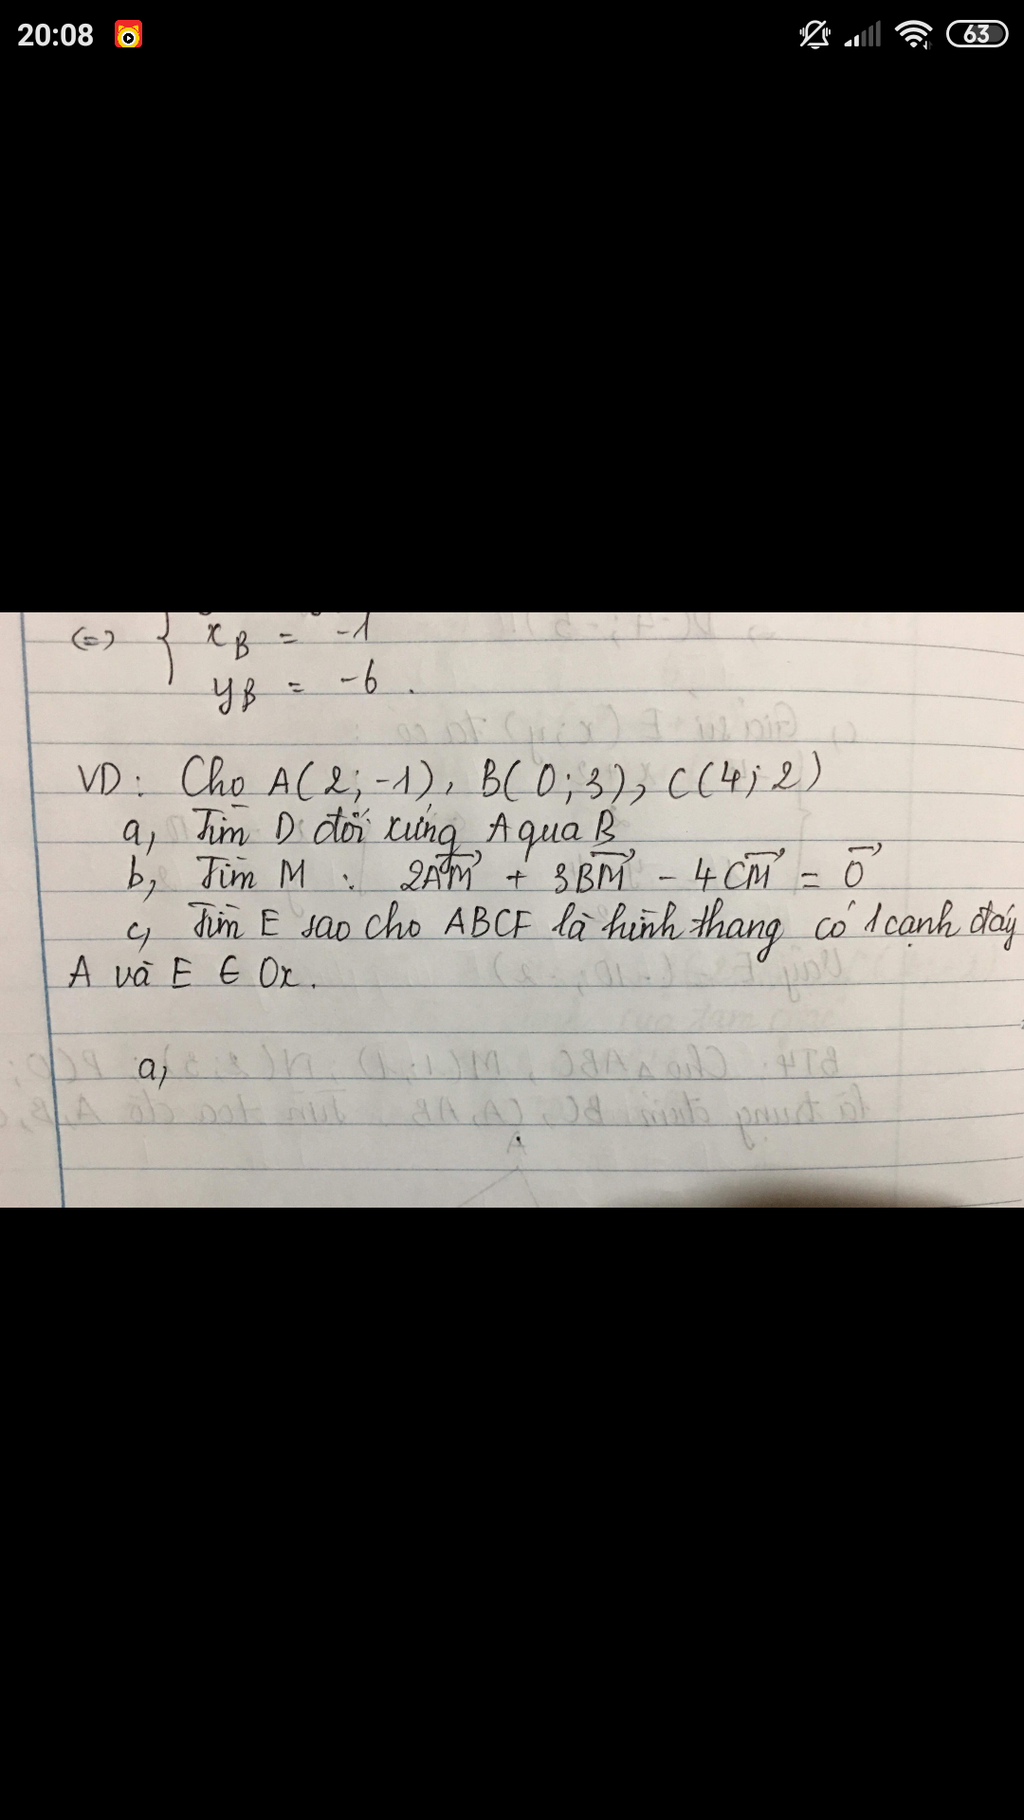 20:08 63
(=) { xB = -1
yB = -6 .
VD: Cho A(2; -1), B(0; 3), C(4; 2)
a, Tìm D đối xứng A qua B
b, Tìm M : 2AM + 3BM - 4CM = 0
c, Tìm E sao cho ABCE là hình thang có 1 cạnh đáy
A và E ∈ Ox.
a,